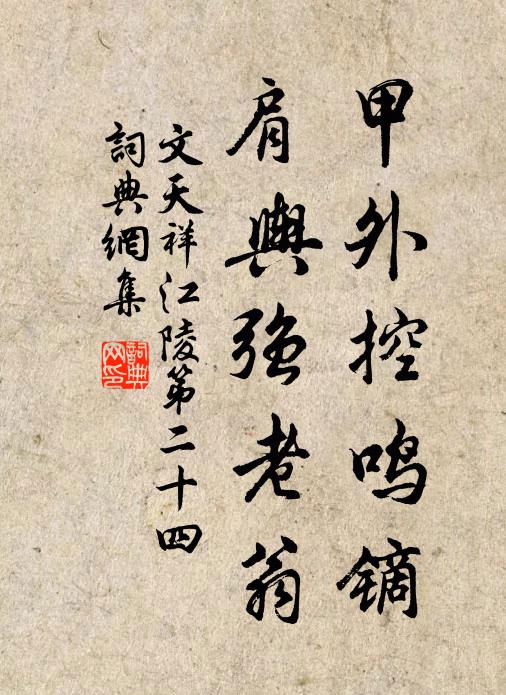 甲外控鸣镝
肩舆强老翁
文天祥江陵第二十四
詞典網集
詞典網印